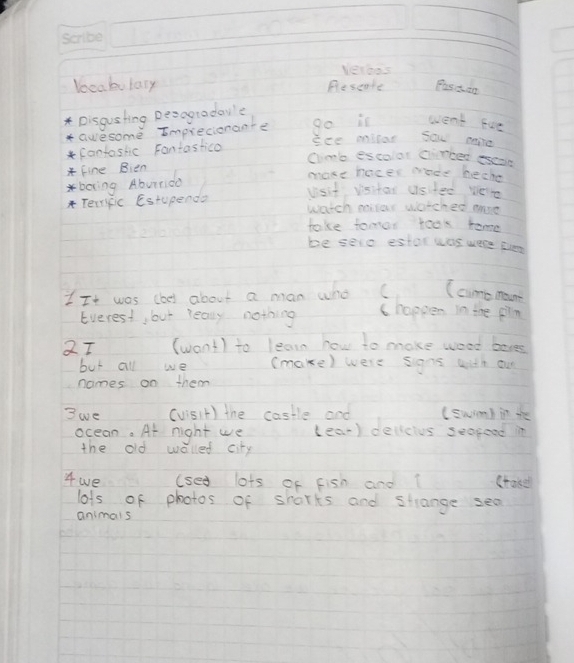 Scribe
Verbos
Vocabulary
Presente Pasado
* Disgusting Desagradavle
* awesome Imprecionante
* fantastic Fantastico
* fine Bien
* boring Aburrido
* Terrific Estupendo
go ir went fue
see mirar saw miro
climb escalar climbed escalo
make hacer made heche
visit visitar
watch mirar watched miro
take tomar took tomo
be sero estar was were
1 It was (be) about a man who ( (cumb mount
Everest, but really nothing ( happen in the film
2 I (want) to learn how to make wood boxes
but all we (make) were signs with our
names on them
3 we (visit) the castle and (swim) in the
ocean. At night we (ear) delicius seafood in
the old walled city
4 we (see lots of fish and I (take)
lots of photos of sharks and strange sea
animals